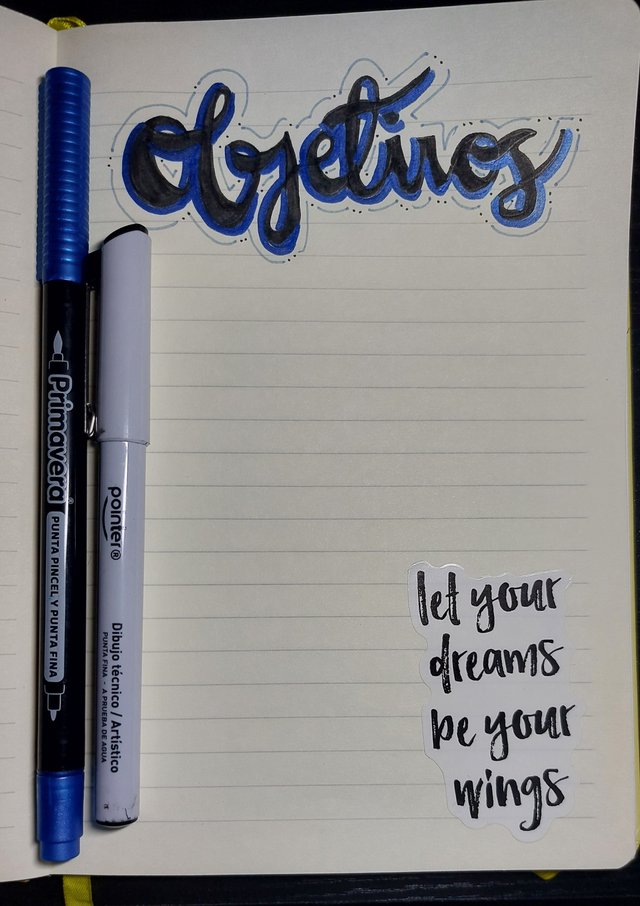 Objetivos
Primavera
PUNTA PINCEL Y PUNTA FINA
pointer®
Dibujo técnico / Artístico
PUNTA FINA - A PRUEBA DE AGUA
let your
dreams
be your
wings